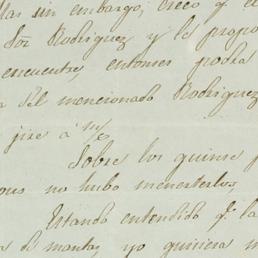 las sin embargo, creo q.e el
Sor Rodriguez y le propo
encuentre, entonses podra
a del mencionado Rodriguez
jire á
Sobre los quinse p
ous no hubo menesterlos,
Estando entendido q.e la
s de manta, yo quisiera m